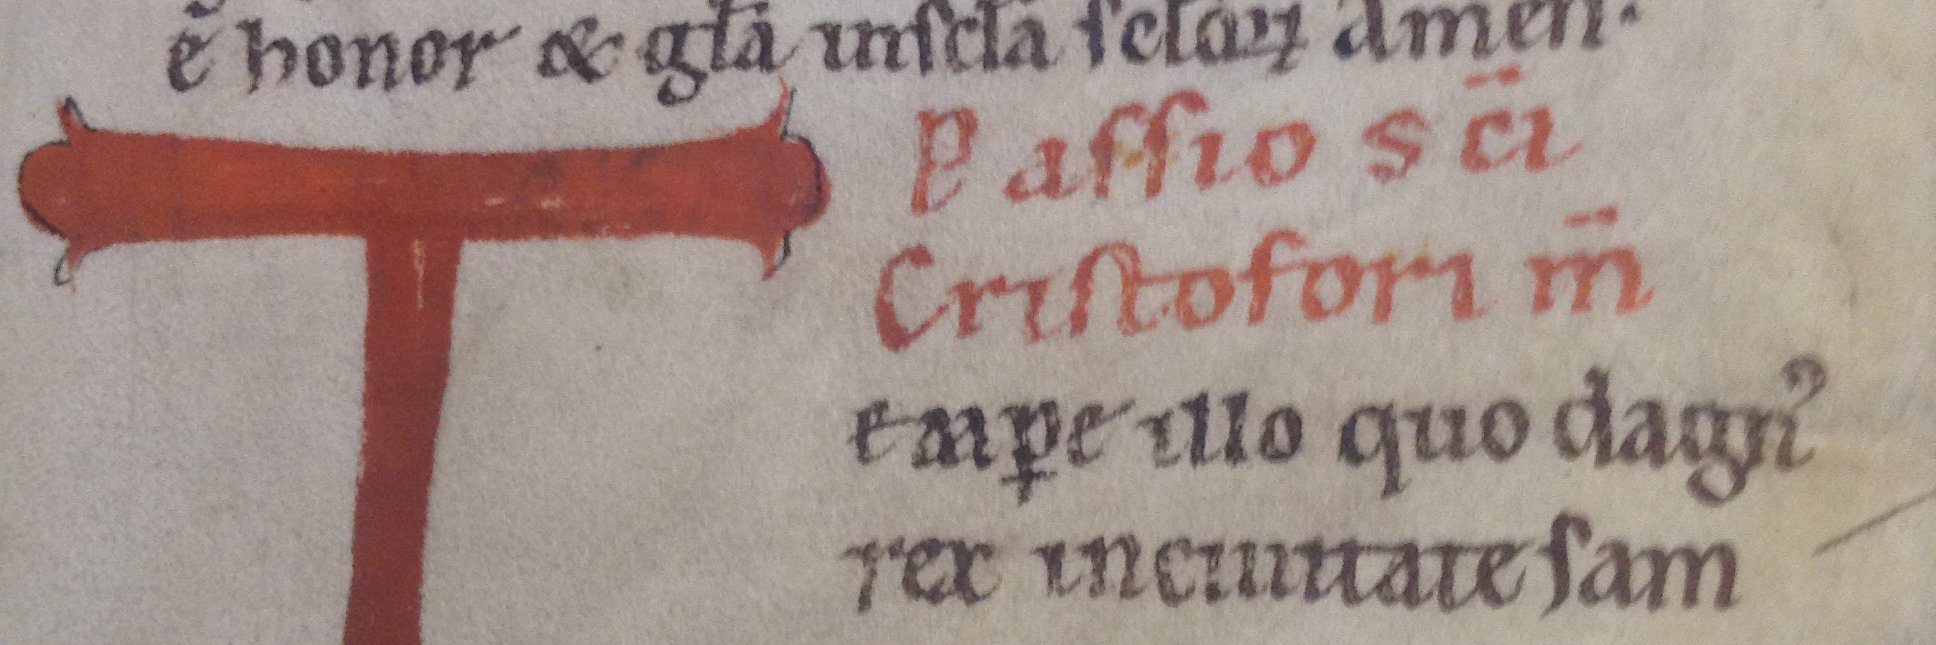 ē honor & gła inscła scłoꝝ amen.
Passio sc̄i
Cristofori m̄
T empꝑe illo quo dagnꝰ
rex inciuitate sam